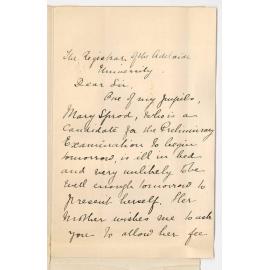 The Registrar of the Adelaide
University.
Dear Sir,
One of my pupils,
Mary Sprod, who is a
Candidate for the Preliminary
Examination to begin
tomorrow, is ill in bed
and very unlikely to be
well enough tomorrow to
present herself. Her
mother wishes me to ask
you to allow her fee